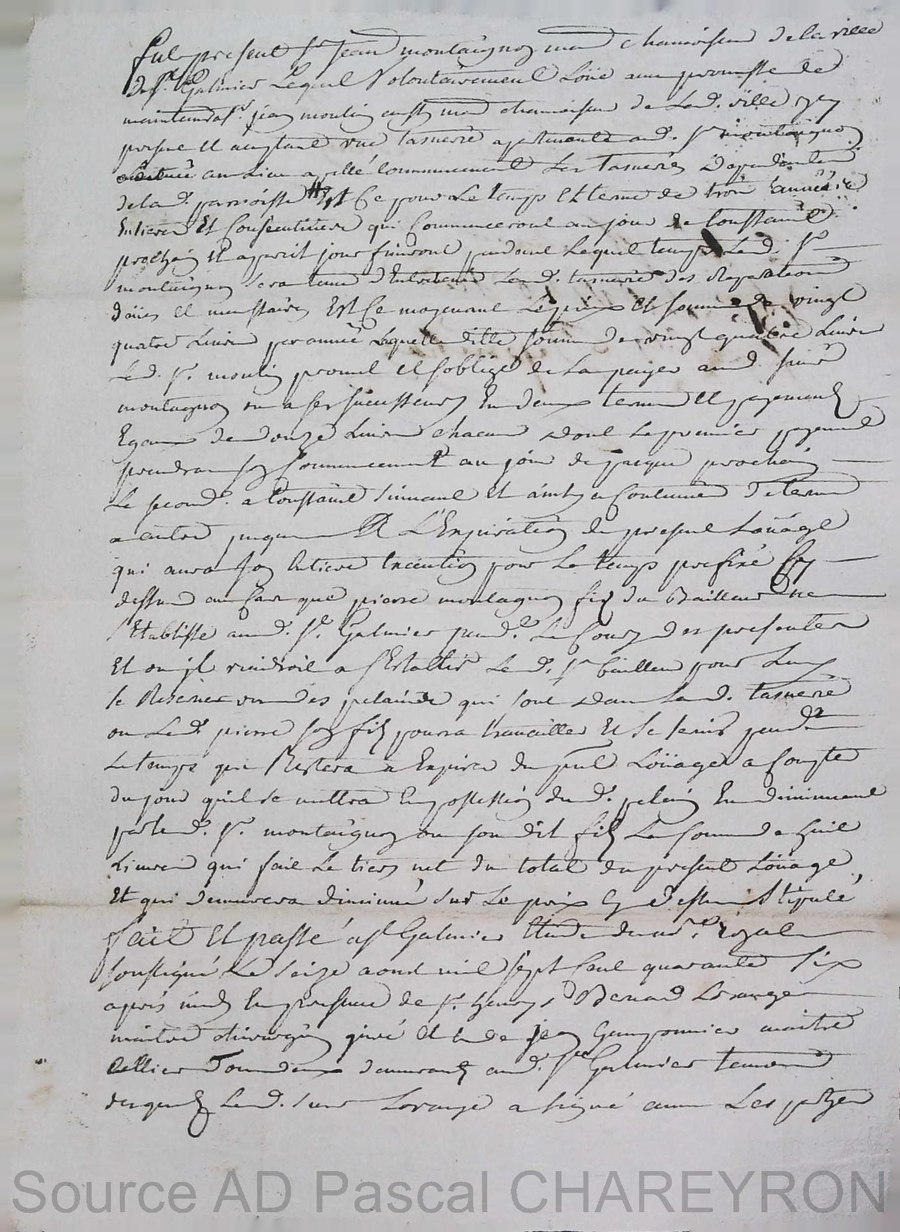 fut présent Sr Jean montaignon md chamoiseur de la ville
de St Galmier Lequel Volontairement Loüe avec promesse de
maintenir a Sr jean moulin aussy md chamoiseur de Lad. ville icy
present et acceptant une tannerie apartenante aud. Sr montaignon
située au Lieu apellé Communement Les Tanneries Dependante
de lad. parroisse Et Ce pour Le temps Et terme de trois années
Entieres Et Consecutives qui Commenceront au jour de toussaint
prochain Et a pareil jour finiront pendant Lequel temps Led. Sr
montaignon sera tenu d'Entretenir Lad. tannerie des Reparations
et necessaires Est Ce moyenant Le prix et somme de vingt
quatre Livres par année Laquelle ditte somme de vingt quatre Livres
Led. Sr moulin promet et s'oblige de La payer aud. sieur
montaignon ou a ses successeurs En deux termes et payements
Egaux de douze Livres chacun dont Le premier payement
prendra son Commencement au jour de paque prochain
Le second a toussaint suivant et ainsy a Continuer de terme
a autre jusques A L'Expiration du present Loüage
qui aura son Entiere Execution pour Le temps prefixé Cy
dessus au Cas que pierre montaignon fils du Bailleur ne
s'Etablisse aud. St Galmier pendt Le Cours des presentes
Et ou jl viendroit a s'Establir Led. Sr bailleur pour Luy
se Reserve un des pelains qui sont dans Lad. tannerie
ou Led. pierre son fils poura travailler Et se servir pendt
Le temps qui Restera a Expirer du pnt Loüage a Compte
du jour qu'il se mettra En possession du d. pelain En diminuant
par led. Sr montaignon ou son dit fils La somme de huit
Livres qui fait Le tiers net du total du present Loüage
Et qui demurera diminué sur Le prix Cy dessus Stipulé
fait Et passé a St Galmier Etude du nore Royal
soussigné Le seize aoust mil sept Cent quarante six
apres midy En presence de Sr Benard Lorange
maitre chirurgien juré Et de jean maitre
Cellier Tous deux demeurants aud. St Galmier temoins
desquels Led. sieur Lorange a signé avec Les parties
Source AD Pascal CHAREYRON